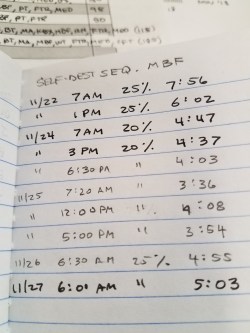 BF, PT, PTR,
SELF-DEST SEQ. MBF
11/22 7 AM 25% 7:56
" 1 PM 25% 6:02
11/24 7 AM 20% 4:47
" 3 PM 20% 4:37
" 6:30 PM " 4:03
11/25 7:20 AM " 3:36
" 12:00 PM " 4:08
" 5:00 PM " 3:54
11/26 6:30 AM 25% 4:55
11/27 6:00 AM " 5:03